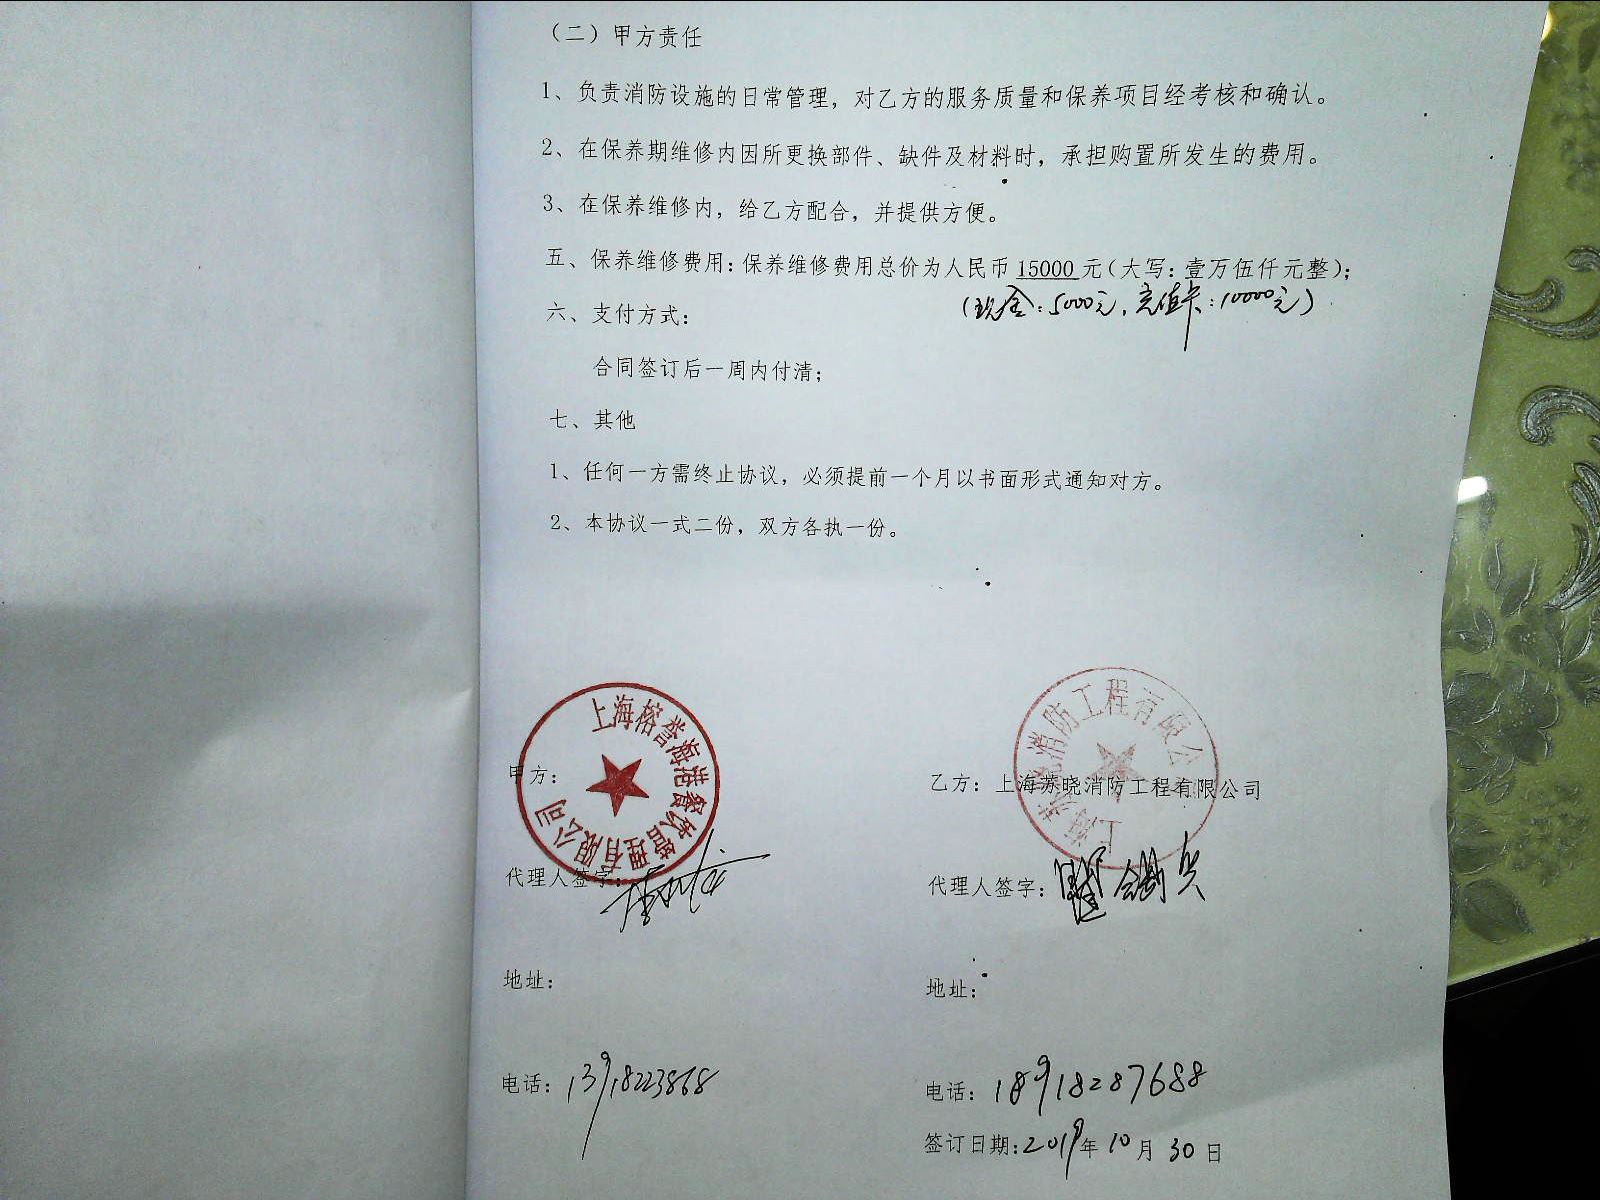 （二）甲方责任
1、负责消防设施的日常管理，对乙方的服务质量和保养项目经考核和确认。
2、在保养期维修内因所更换部件、缺件及材料时，承担购置所发生的费用。
3、在保养维修内，给乙方配合，并提供方便。
五、保养维修费用：保养维修费用总价为人民币 15000 元（大写：壹万伍仟元整）；
（现金：5000元，充值卡：10000元）
六、支付方式：
合同签订后一周内付清；
七、其他
1、任何一方需终止协议，必须提前一个月以书面形式通知对方。
2、本协议一式二份，双方各执一份。
上海榕誉海港餐饮管理有限公司
上海苏晓消防工程有限公
甲方：
乙方：上海苏晓消防工程有限公司
代理人签字：
代理人签字：
地址：
地址：
电话：13918223868
电话：18918287688
签订日期：2019年10月30日